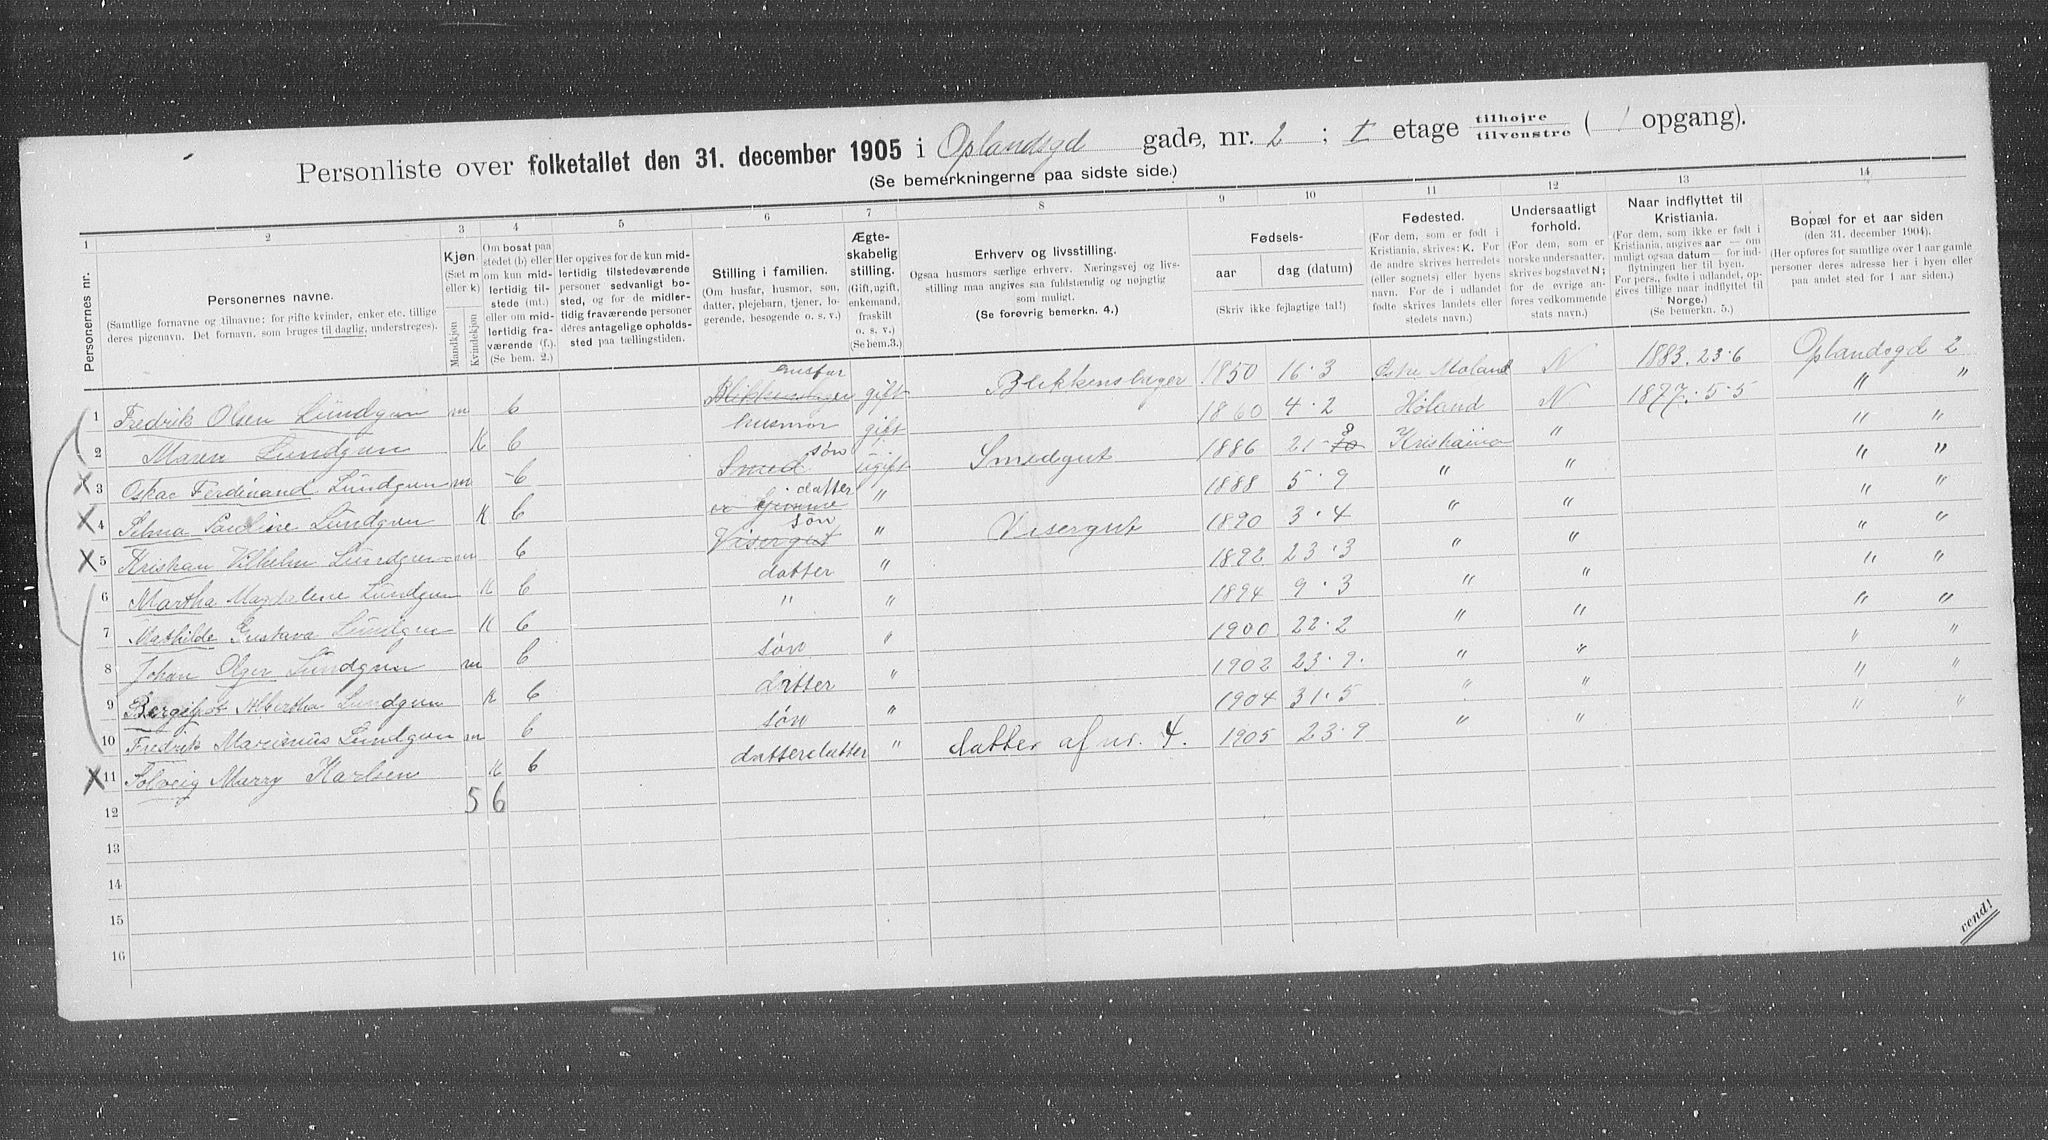 Personliste over folketallet den 31. december 1905 i Oplandsgd gade, nr. 2 ; I etage tilhøjre / tilvenstre ( 1 opgang).
(Se bemerkningerne paa sidste side.)
1 2 3 4 5 6 7 8 9 10 11 12 13 14
Personernes nr.
Personernes navne.
(Samtlige fornavne og tilnavne; for gifte kvinder, enker etc. tillige deres pigenavn. Det fornavn, som bruges til daglig, understreges).
Kjøn. (Sæt m eller k) Mandkjøn Kvindekjøn
Om bosat paa stedet (b) eller om kun midlertidig tilstede (mt.) eller om midlertidig fraværende (f.). (Se bem. 2.)
Her opgives for de kun midlertidig tilstedeværende personer sedvanligt bosted, og for de midlertidig fraværende personer deres antagelige opholdssted paa tællingstiden.
Stilling i familien. (Om husfar, husmor, søn, datter, plejebarn, tjener, logerende, besøgende o. s. v.)
Ægteskabelig stilling. (Gift, ugift, enkemand, fraskilt o. s. v.) (Se bem.3.)
Erhverv og livsstilling. Ogsaa husmors særlige erhverv. Næringsvej og livsstilling maa angives saa fuldstændig og nøjagtig som muligt. (Se forøvrig bemerkn. 4.)
Fødsels- aar dag (datum) (Skriv ikke fejlagtige tal!)
Fødested. (For dem, som er født i Kristiania, skrives: K. For de andre skrives herredets (eller sognets) eller byens navn. For de i udlandet fødte skrives landets eller stedets navn.)
Undersaatligt forhold. (For dem, som er norske undersaatter, skrives bogstavet N; for de øvrige anføres vedkommende stats navn.)
Naar indflyttet til Kristiania. (For dem, som ikke er født i Kristiania, angives aar — om muligt ogsaa datum — for indflytningen her til byen. For pers., fødte i udlandet, opgives tillige naar indflyttet til Norge.) (Se bemerkn. 5.)
Bopæl for et aar siden (den 31. december 1904). (Her opføres for samtlige over 1 aar gamle personer deres adresse her i byen eller paa andet sted for 1 aar siden.)
1 Fredrik Olsen Lundgren m b Blikkenslager husfar gift Blikkenslager 1850 16.3 Østre Moland N 1883. 23.6 Oplandsgd 2
2 Maren Lundgren K b husmor gift 1860 4.2 Høland N 1877. 5.5 " "
3 Oskar Ferdinand Lundgren m b Smed søn ugift Smedgut 1886 21. 10 8 Kristiania " " "
4 Selma Pauline Lundgren K b datter " 1888 5.9 " " " "
5 Kristian Vilhelm Lundgren m b Visergut søn " Visergut 1890 3.4 " " " "
6 Martha Magdalene Lundgren K b datter " 1892 23.3 " " " "
7 Mathilde Gustava Lundgren K b " " 1894 9.3 " " " "
8 Johan Olger Lundgren m b søn " 1900 22.2 " " " "
9 Bergljot Albertha Lundgren K b datter " 1902 23.9. " " " "
10 Fredrik Marinius Lundgren m b søn " 1904 31.5 " " " "
11 Solveig Marry Karlsen K b datterdatter " datter af nr. 4. 1905 23.9 " " " "
12 5 6
13
14
15
16
vend!